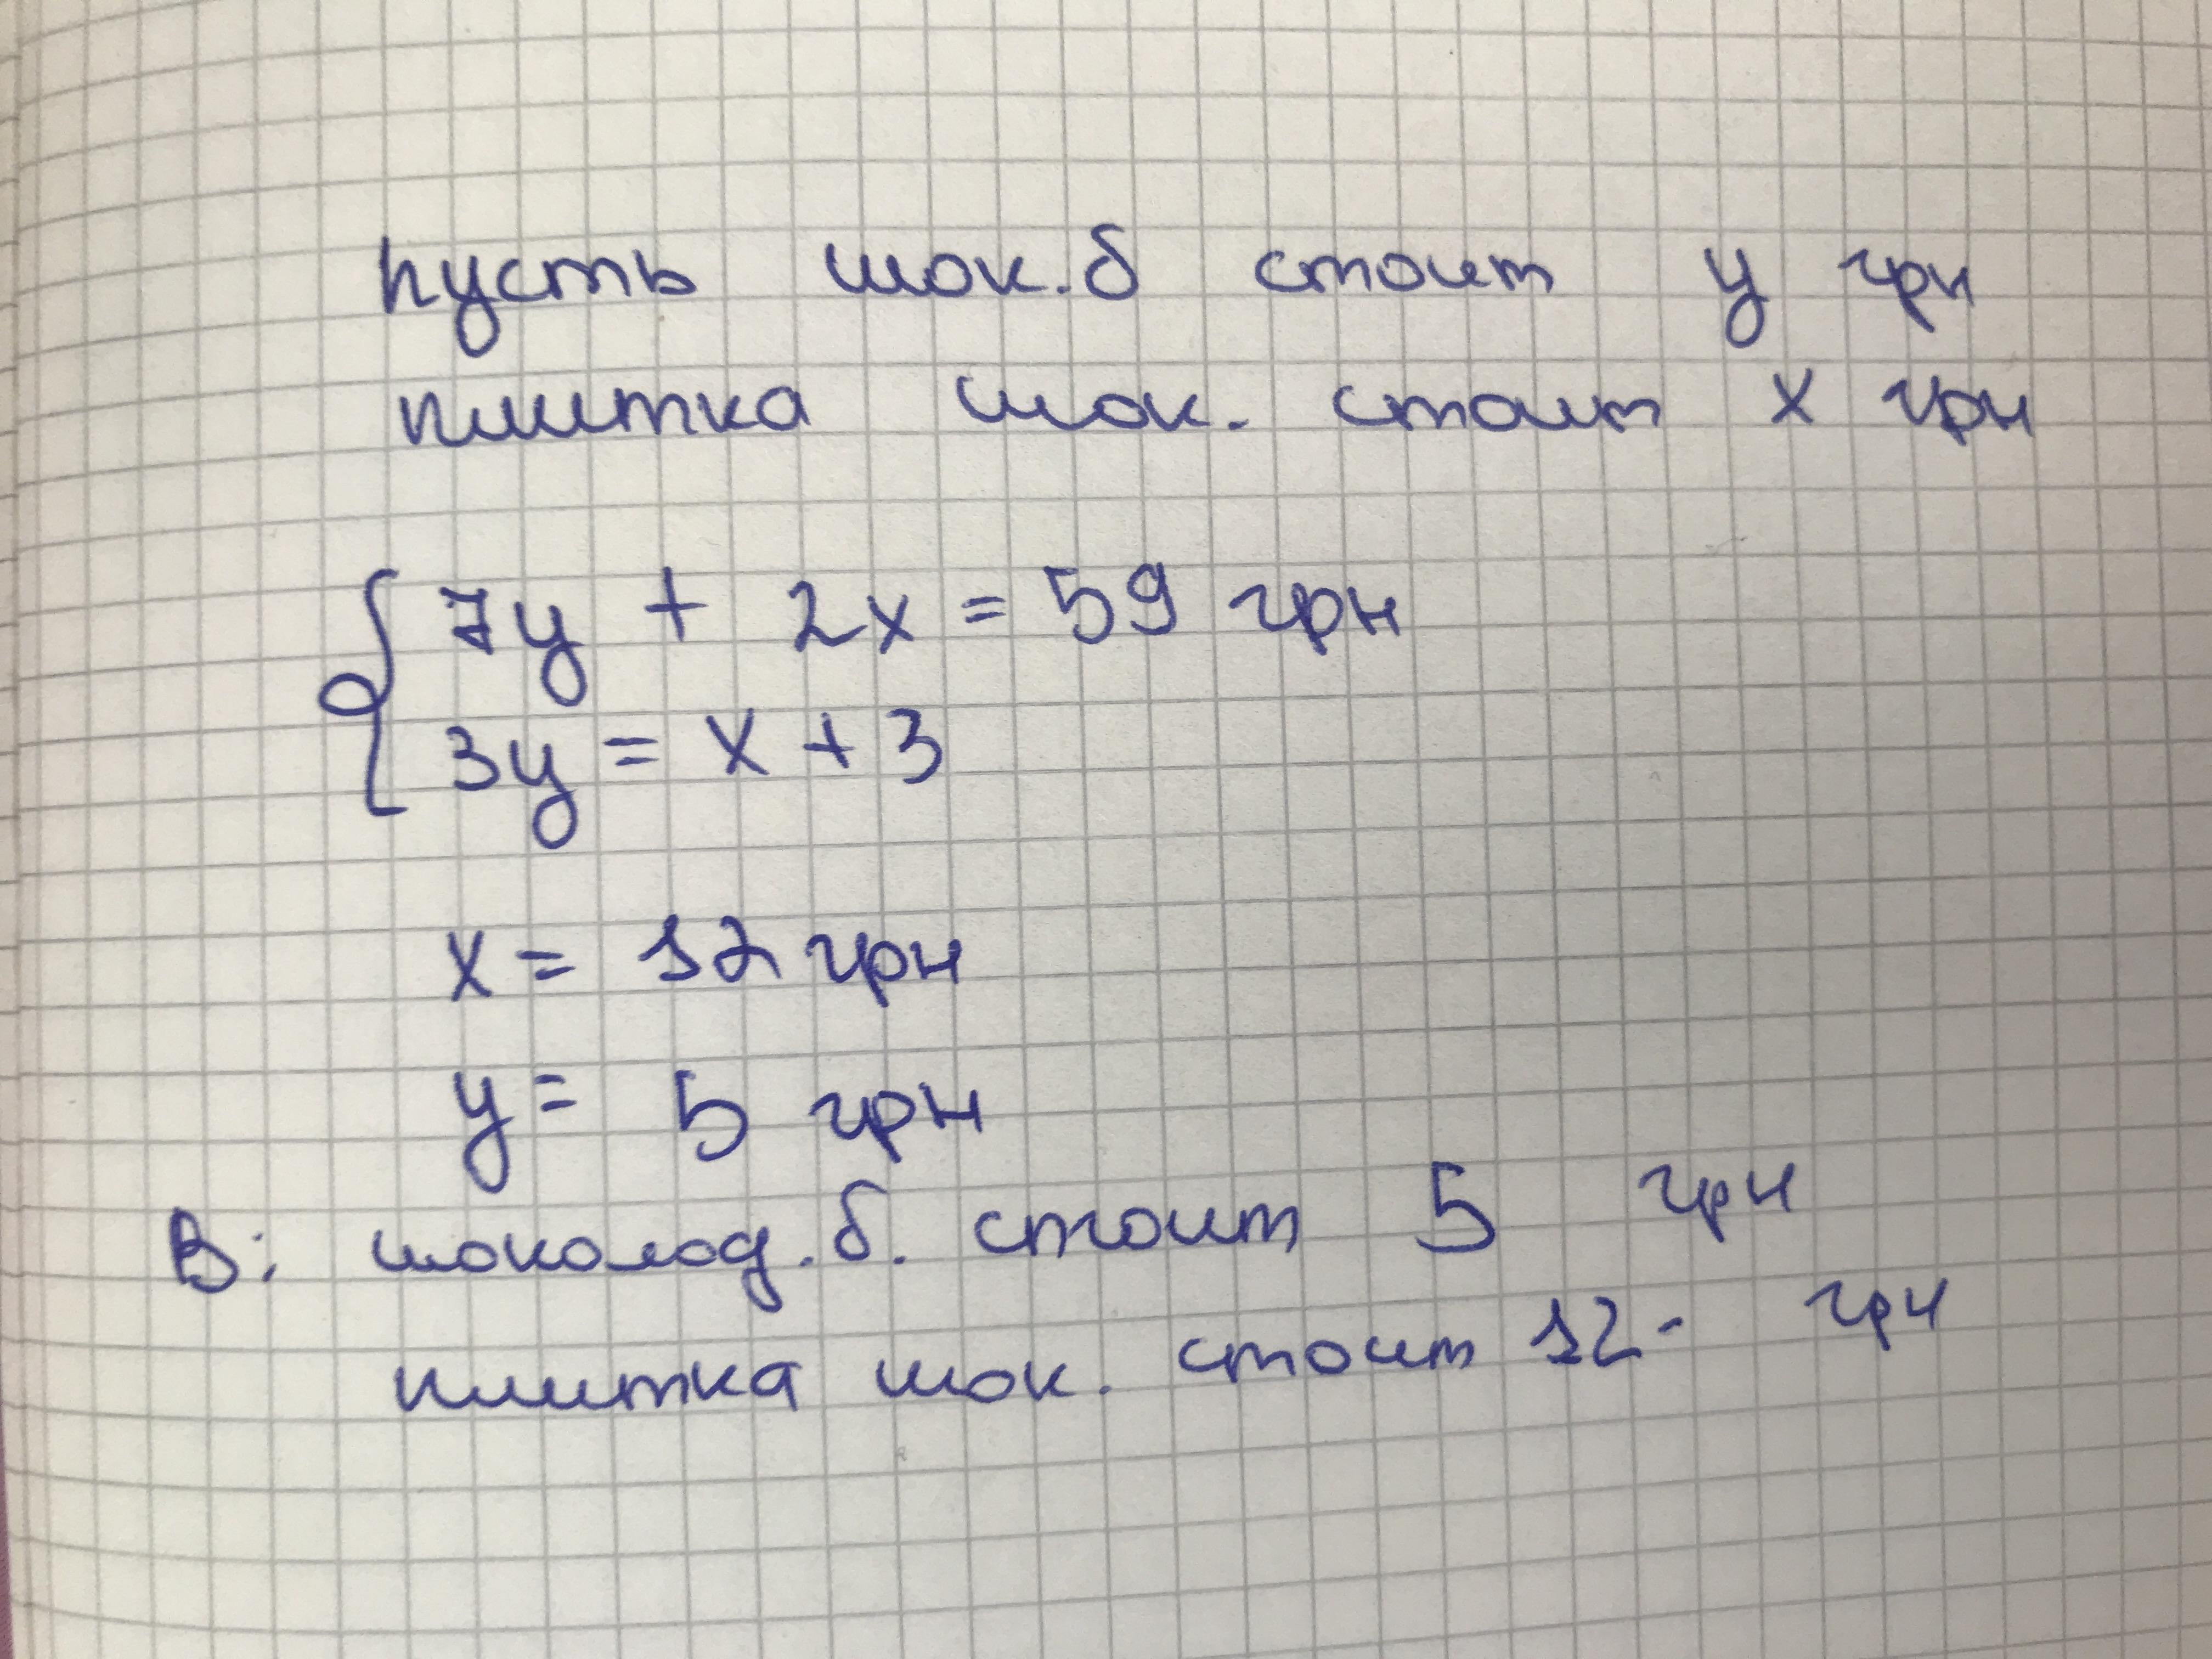 пусть шок. б стоит у грн
плитка шок. стоит х грн
7у + 2х = 59 грн
3у = х + 3
х = 12 грн
у = 5 грн
В: шоколод. б. стоит 5 грн
плитка шок. стоит 12- грн